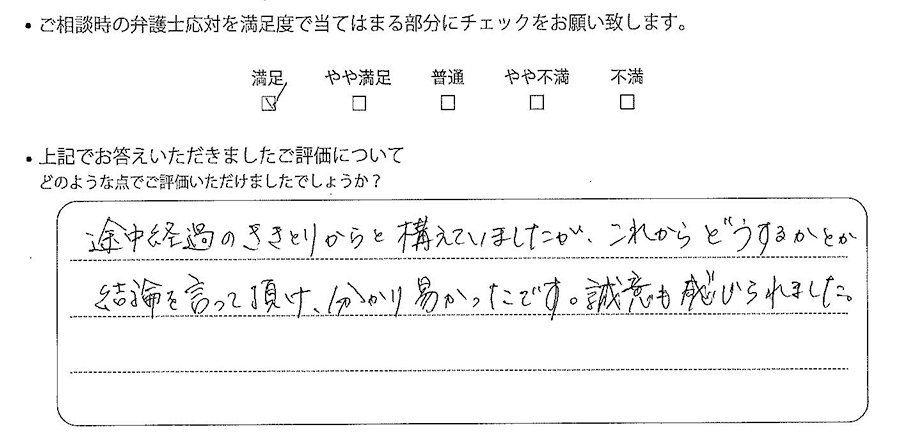 ・ご相談時の弁護士応対を満足度で当てはまる部分にチェックをお願い致します。
満足 やや満足 普通 やや不満 不満
☑ □ □ □ □
・上記でお答えいただきましたご評価について
どのような点でご評価いただけましたでしょうか？
途中経過のききとりからと構えていましたが、これからどうするかとか
結論を言って頂け、分かり易かったです。誠意も感じられました。